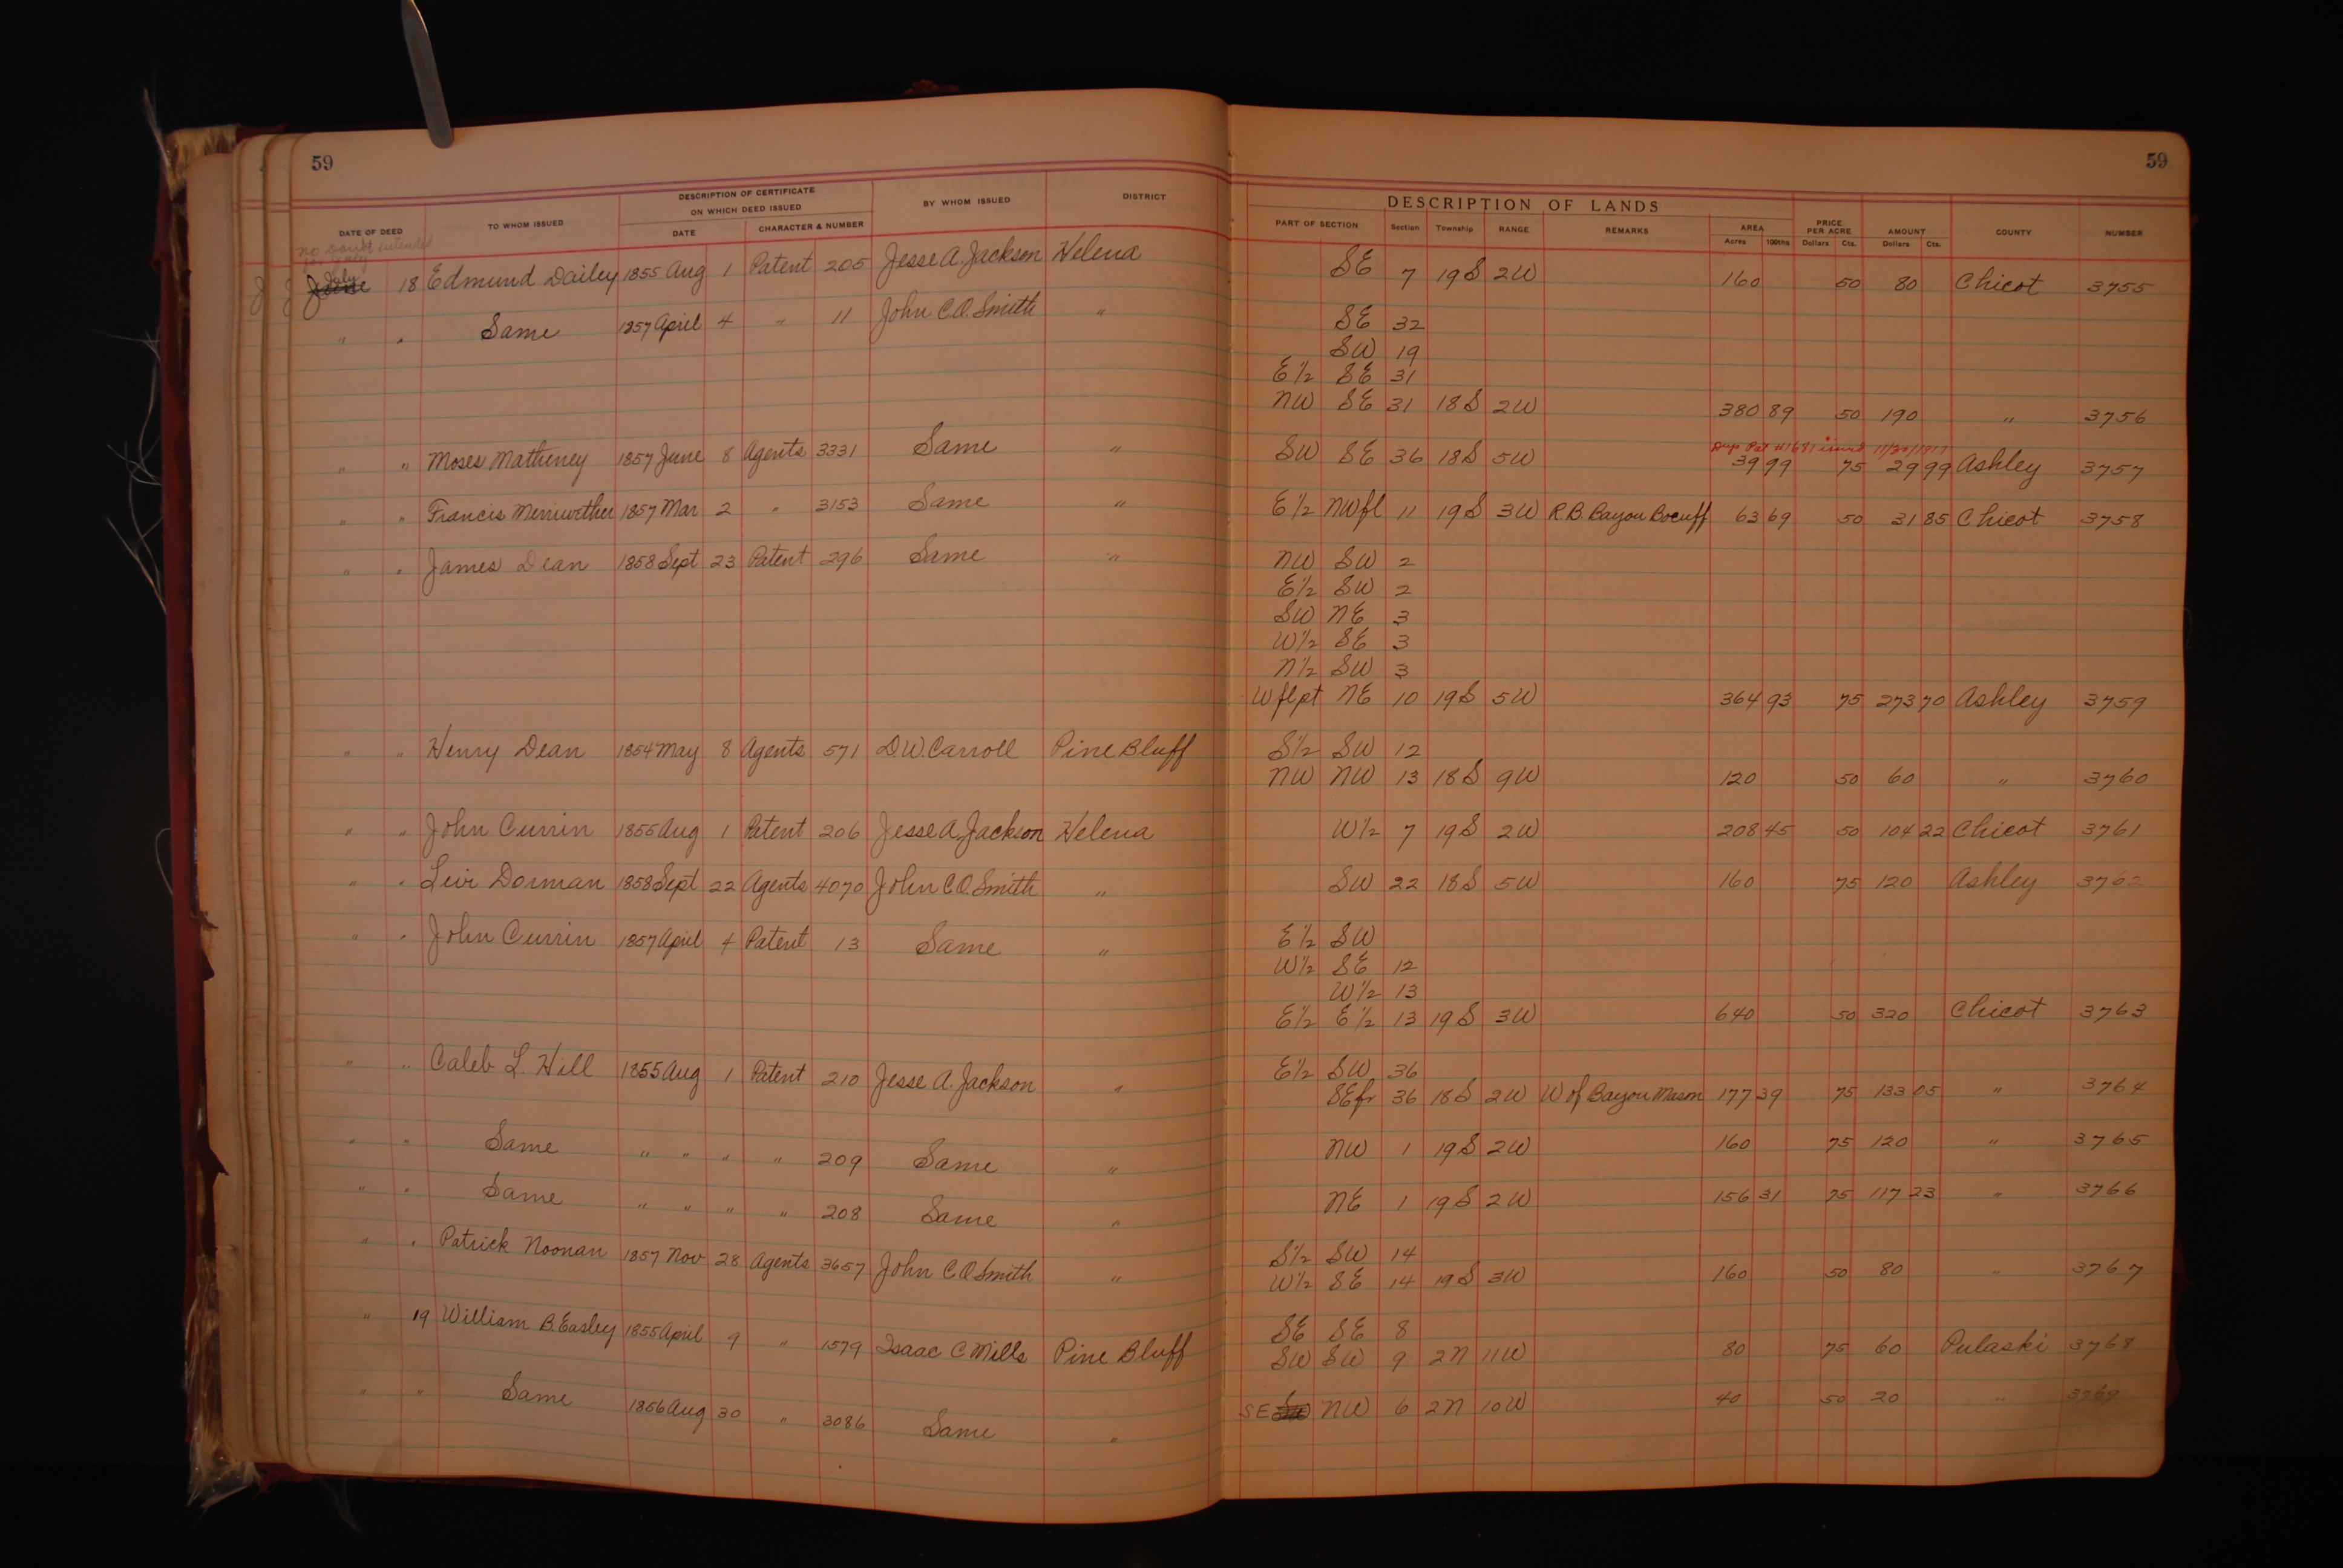 59
59
DESCRIPTION OF CERTIFICATE
ON WHICH DEED ISSUED
DATE OF DEED TO WHOM ISSUED DATE CHARACTER & NUMBER BY WHOM ISSUED DISTRICT
DESCRIPTION OF LANDS
PART OF SECTION Section Township RANGE REMARKS AREA Acres 100ths PRICE PER ACRE Dollars Cts. AMOUNT Dollars Cts. COUNTY NUMBER
no doubt intended
for July
July 18 Edmund Dailey 1855 Aug 1 Patent 205 Jesse A. Jackson Helena SE 7 19S 2W 160 50 80 Chicot 3755
" " Same 1857 April 4 " 11 John C.O. Smith " SE 32
SW 19
E½ SE 31
NW SE 31 18S 2W 380 89 50 190 " 3756
Dup Pat #1681 issued 11/20/1917
" " Moses Matheney 1857 June 8 Agents 3331 Same " SW SE 36 18S 5W 39 99 75 29 99 Ashley 3757
" " Frances Merriwether 1857 Mar 2 " 3153 Same " E½ NWfl 11 19S 3W R.B. Bayou Bocuff 63 69 50 31 85 Chicot 3758
" " James Dean 1858 Sept 23 Patent 296 Same " NW SW 2
E½ SW 2
SW NE 3
W½ SE 3
N½ SW 3
W flpt NE 10 19S 5W 364 93 75 273 70 Ashley 3759
" " Henry Dean 1854 May 8 Agents 571 D.W. Carroll Pine Bluff S½ SW 12
NW NW 13 18S 9W 120 50 60 " 3760
" " John Currin 1855 Aug 1 Patent 206 Jesse A. Jackson Helena W½ 7 19S 2W 208 45 50 104 22 Chicot 3761
" " Levi Dorman 1858 Sept 22 Agents 4070 John C.O. Smith " SW 22 18S 5W 160 75 120 Ashley 3762
" " John Currin 1857 April 4 Patent 13 Same " E½ SW
W½ SE 12
W½ 13
E½ E½ 13 19S 3W 640 50 320 Chicot 3763
" " Caleb L. Hill 1855 Aug 1 Patent 210 Jesse A. Jackson " E½ SW 36
SEfr 36 18S 2W W of Bayou Mason 177 39 75 133 05 " 3764
" " Same " " " " 209 Same " NW 1 19S 2W 160 75 120 " 3765
" " Same " " " " 208 Same " NE 1 19S 2W 156 31 75 117 23 " 3766
" " Patrick Noonan 1857 Nov 28 Agents 3657 John C.O. Smith " S½ SW 14
W½ SE 14 19S 3W 160 50 80 " 3767
" 19 William B. Easley 1855 April 9 " 1579 Isaac C Mills Pine Bluff SE SE 8
SW SW 9 2N 11W 80 75 60 Pulaski 3768
" " Same 1856 Aug 30 " 3086 Same " SE NW 6 2N 10W 40 50 20 " 3769